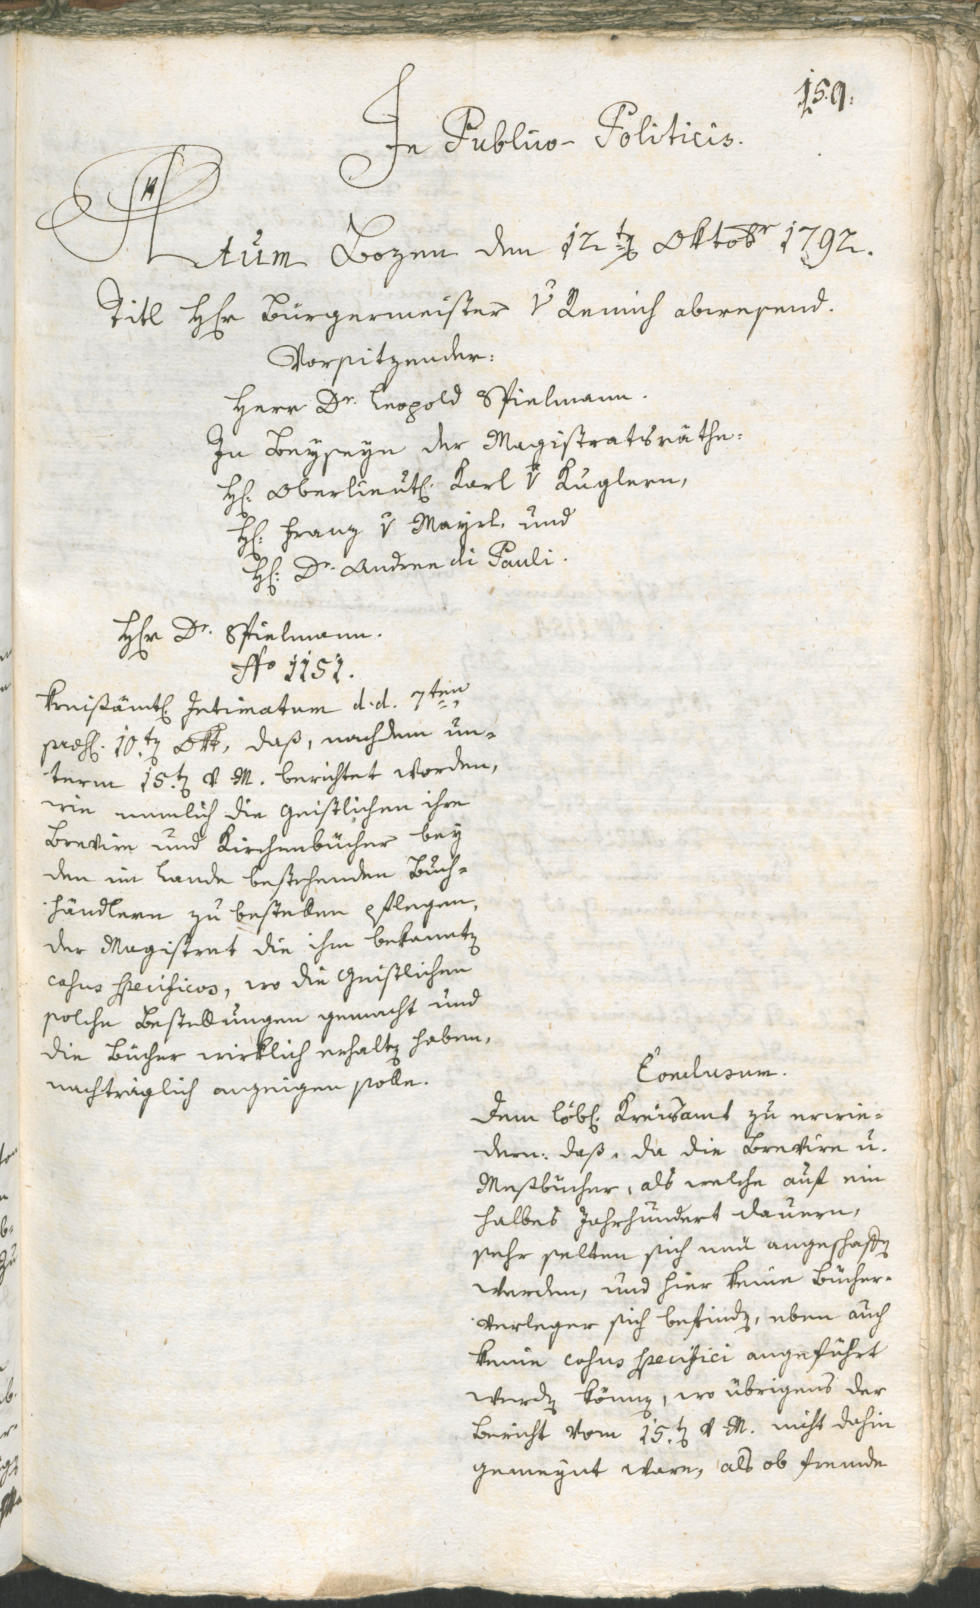 159.
In Publico-Politicis.
Actum Bozen den 12t. Oktobr 1792.
Titl Hr Bürgermeister v Remich abwesend.
Vorsitzender:
Herr Dr. Leopold Spielmann.
In Beyseyn der Magistratsräthe:
H: Oberlieut. Karl v Kuglern,
H: Franz v Mayrl, und
H: Dr. Andree di Pauli.
Hr Dr. Spielmann.
No 1151.
Kreißämtl. Intimatum d.d. 7ten,
præs. 10t. Okt., daß, nachdem un-
term 15.t. v. M. berichtet worden,
wie nemlich die Geistlichen ihre
Brevire und Kirchenbücher bey
den im Lande bestehenden Buch-
händlern zu bestellen pflegen,
der Magistrat die ihm bekannt.
casus specificos, wo die Geistlichen
solche Bestellungen gemacht und
die Bücher wirklich erhalt. haben,
nachträglich anzeigen solle.
Conclusum.
Dem löbl. Kreisamt zu erwie-
dern: daß, da die Brevire u.
Meßbücher, als welche auf ein
halbes Jahrhundert dauern,
sehr selten sich neu angeschaft
werden, und hier keine Bücher-
verleger sich befind., eben auch
keine casus specifici angeführt
werd. könn., wo übrigens der
Bericht vom 15.t. v. M. nicht dahin
gemeynt ware, als ob fremde